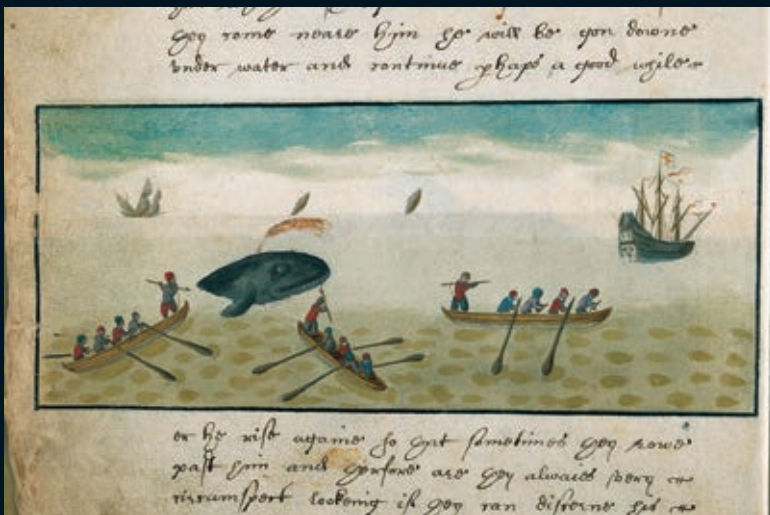 they come neare hjm he will be gon downe
vnder water and continue phaps a good while
er he rise againe so that sometimes they rowe
past him and therfore are they alwaies very
circumspect lookeing if they can discerne his